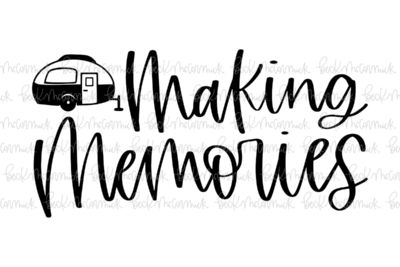 Making
Memories